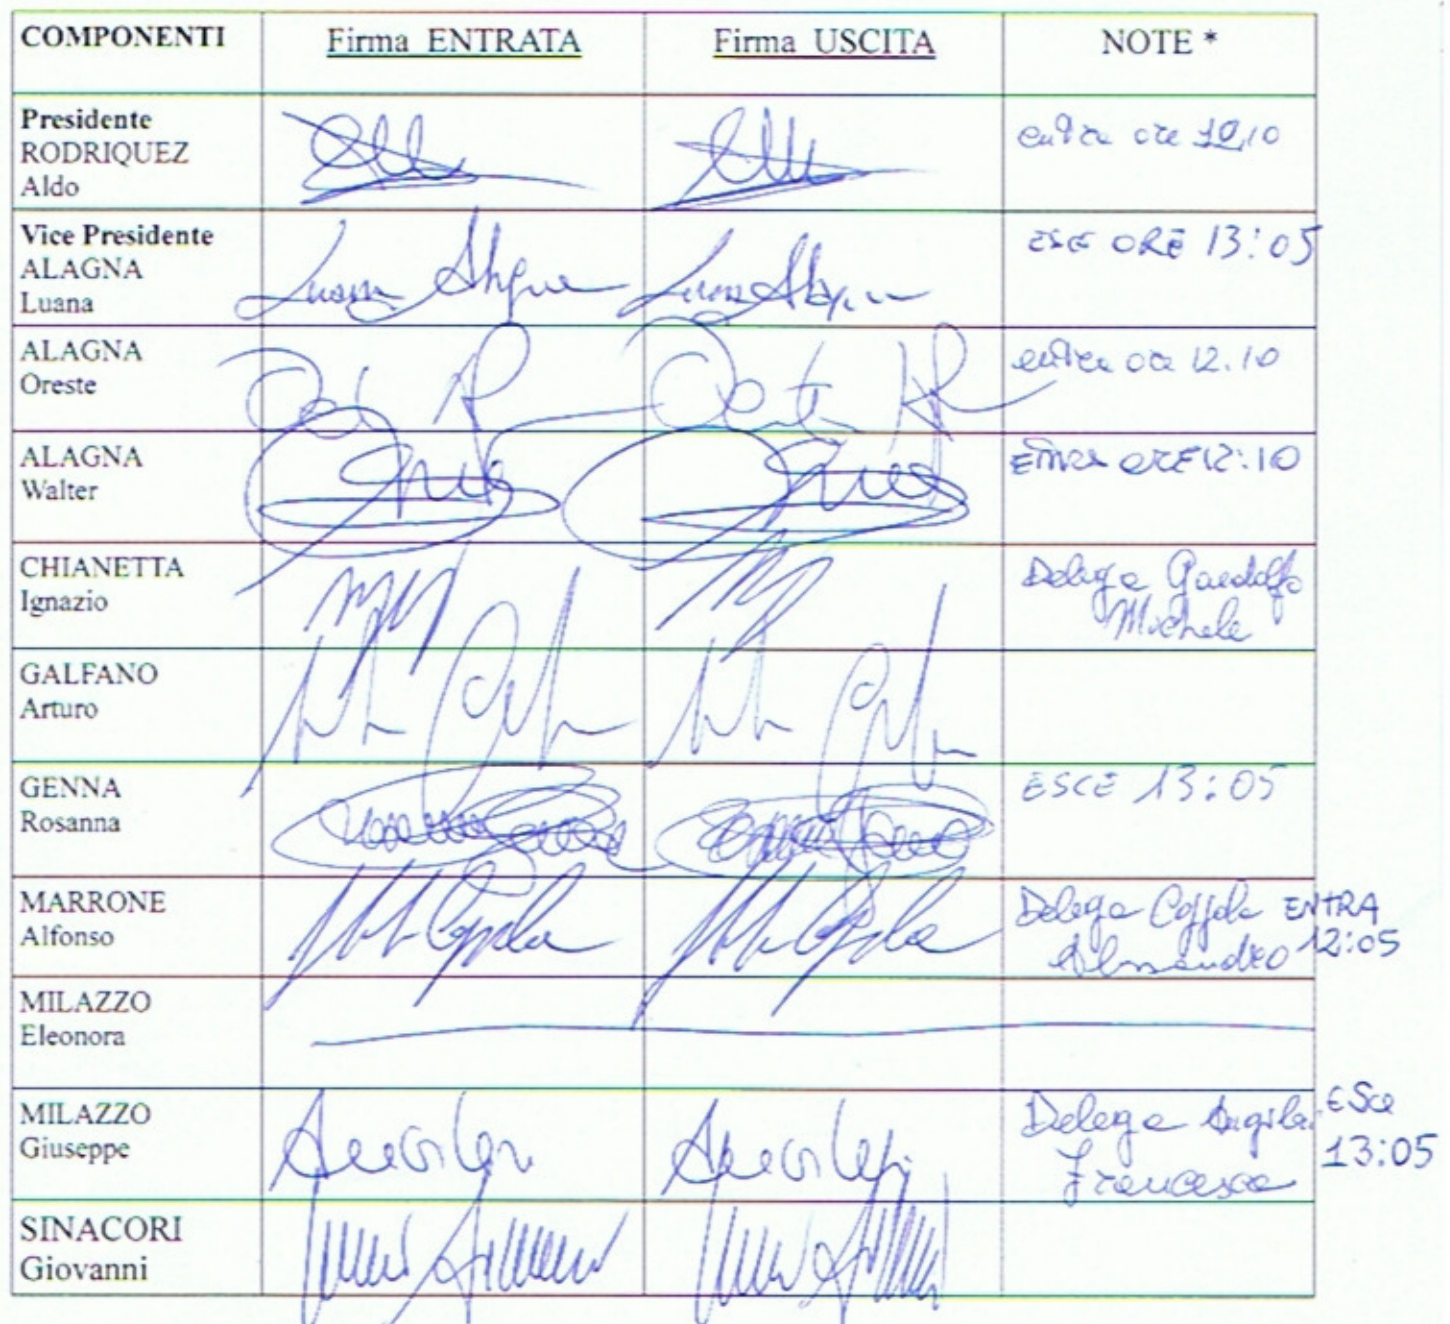 COMPONENTI Firma ENTRATA Firma USCITA NOTE *
Presidente
RODRIQUEZ
Aldo
entra ore 12,10
Vice Presidente
ALAGNA
Luana
Luana Alagna Luana Alagna
ESCE ORE 13:05
ALAGNA
Oreste
entra ore 12.10
ALAGNA
Walter
ENTRA ORE 12:10
CHIANETTA
Ignazio
Delega Gandolfo
Michele
GALFANO
Arturo
GENNA
Rosanna
ESCE 13:05
MARRONE
Alfonso
Delega Coppola ENTRA
Alessandro 12:05
MILAZZO
Eleonora
MILAZZO
Giuseppe
Delega Angileri ESCE
Francesca 13:05
SINACORI
Giovanni